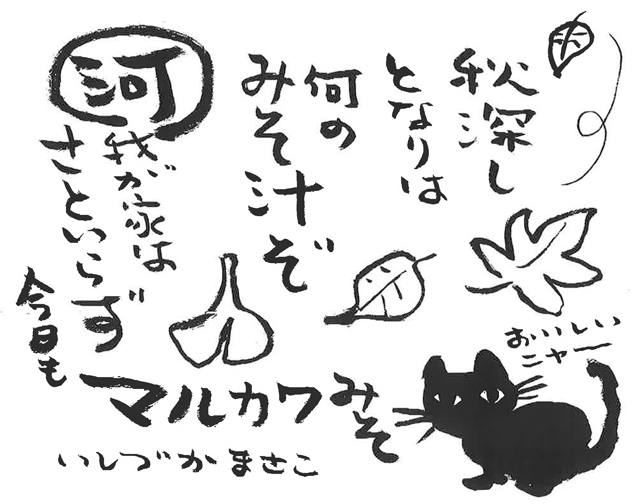 秋深し
となりは
何の
みそ汁ぞ
河
我が家は
さといらず
今日も
マルカワみそ
いしづかまさこ
おいしい
ニャー